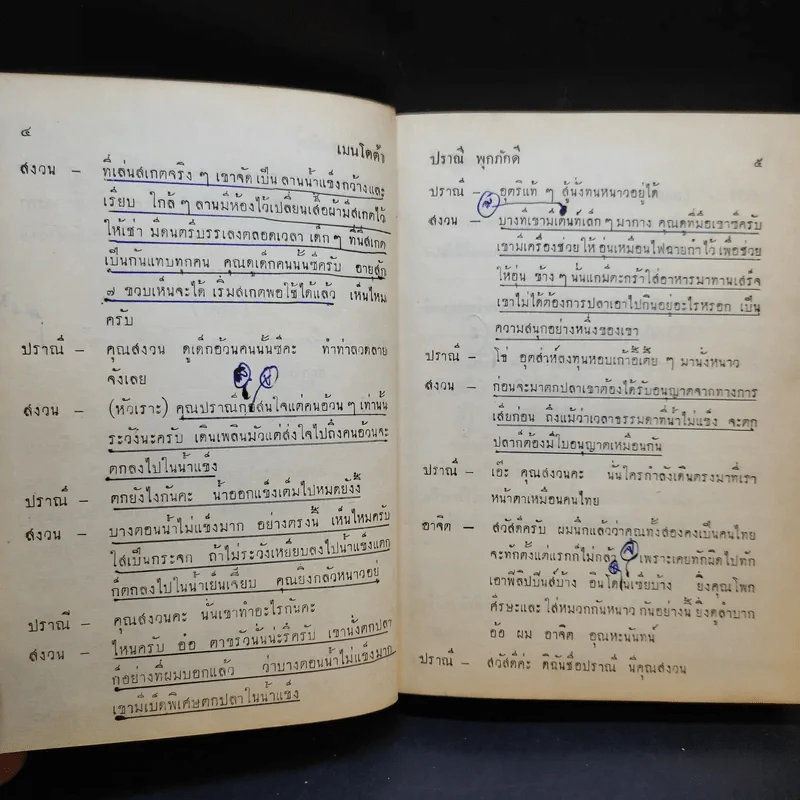 ๔
เมนโดต้า
สงวน – ที่เล่นสเกตจริง ๆ เขาจัดเป็นลานน้ำแข็งกว้างและ
เรียบ ใกล้ ๆ ลานมีห้องไว้เปลี่ยนเสื้อผ้ามีสเกตไว้
ให้เช่า มีดนตรีบรรเลงตลอดเวลา เด็ก ๆ ที่นี่สเกต
เป็นกันแทบทุกคน คุณดูเด็กคนนั้นซีครับ อายุสัก
๗ ขวบเห็นจะได้ เริ่มสเกตพอใช้ได้แล้ว เห็นไหม
ครับ
ปราณี – คุณสงวน ดูเด็กอ้วนคนนั้นซีคะ ทำท่าลวดลาย
จังเลย
สงวน – (หัวเราะ) คุณปราณีก็สนใจแต่คนอ้วน ๆ เท่านั้น
ระวังนะครับ เดินเพลินมัวแต่ส่งใจไปถึงคนอ้วนจะ
ตกลงไปในน้ำแข็ง
ปราณี – ตกยังไงกันคะ น้ำออกแข็งเต็มไปหมดยังงี้
สงวน – บางตอนน้ำไม่แข็งมาก อย่างตรงนี้ เห็นไหมครับ
ใสเป็นกระจก ถ้าไม่ระวังเหยียบลงไปน้ำแข็งแตก
ก็ตกลงไปในน้ำเย็นเจี๊ยบ คุณยิ่งกลัวหนาวอยู่
ปราณี – คุณสงวนคะ นั่นเขาทำอะไรกันคะ
สงวน – ไหนครับ อ๋อ ตาชรัวนั่นน่ะรึครับ เขานั่งตกปลา
ก็อย่างที่ผมบอกแล้ว ว่าบางตอนน้ำไม่แข็งมาก
เขามีเบ็ดพิเศษตกปลาในน้ำแข็ง
ปราณี พุกภักดี
๕
ปราณี – อุตริแท้ ๆ สู้นั่งทนหนาวอยู่ได้
สงวน – บางทีเขามีเต็นท์เล็ก ๆ มากาง คุณดูที่มือเขาซีครับ
เขามีเครื่องช่วยให้อุ่นเหมือนไฟฉายกำไว้ เพื่อช่วย
ให้อุ่น ข้าง ๆ นั้นแกมีตะกร้าใส่อาหารมาทานเสร็จ
เขาไม่ได้ต้องการปลาเอาไปกินอยู่อะไรหรอก เป็น
ความสนุกอย่างหนึ่งของเขา
ปราณี – โธ่ อุตส่าห์ลงทุนหอบเก้าอี้เตี้ย ๆ มานั่งหนาว
สงวน – ก่อนจะมาตกปลาเขาต้องได้รับอนุญาตจากทางการ
เสียก่อน ถึงแม้ว่าเวลาธรรมดาที่น้ำไม่แข็ง จะตก
ปลาก็ต้องมีใบอนุญาตเหมือนกัน
ปราณี – เอ๊ะ คุณสงวนคะ นั่นใครกำลังเดินตรงมาที่เรา
หน้าตาเหมือนคนไทย
อาจิต – สวัสดีครับ ผมนึกแล้วว่าคุณทั้งสองคงเป็นคนไทย
จะทักตั้งแต่แรกก็ไม่กล้า เพราะเคยทักผิดไปทัก
เอาฟิลิปปีนส์บ้าง อินโดเนเซียบ้าง ยิ่งคุณโพก
ศีรษะและ ใส่หมวกกันหนาว กันอย่างนี้ ยิ่งดูลำบาก
อ้อ ผม อาจิต อุณหะนันทน์
ปราณี – สวัสดีค่ะ ดิฉันชื่อปราณี นี่คุณสงวน